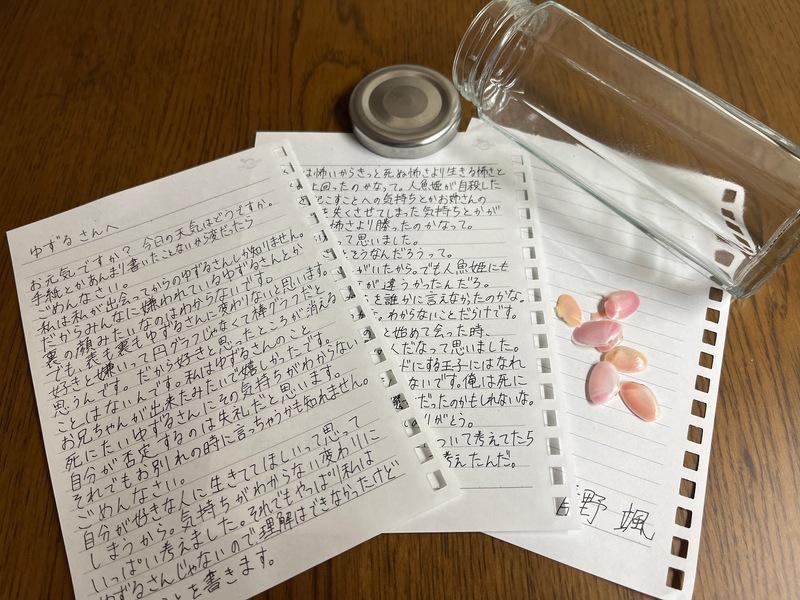 ゆずるさんへ
お元気ですか？今日の天気はどうですか。
手紙とかあんまり書いたことないから変だったら
ごめんなさい。
私は私が出会ってからのゆずるさんしか知りません。
だからみんなに嫌われているゆずるさんとか
裏の顔みたいなのはわからないです。
でも、表も裏もゆずるさんに変わりないと思います。
好きと嫌いって円グラフじゃなくて棒グラフだと
思うんです。だから好きと思ったところが消える
ことはないんです。私はゆずるさんのこと
お兄ちゃんが出来たみたいで嬉しかったです。
死にたいゆずるさんにその気持ちがわからない
自分が否定するのは失礼だと思います。
それでもお別れの時に言っちゃうかも知れません。
ごめんなさい。
自分が好きな人に生きててほしいって思って
しまうから。気持ちがわからない変わりに
いっぱい考えました。それでもやっぱり私は
ゆずるさんじゃないので理解はできなかったけど
ことを書きます。
は怖いからきっと死ぬ怖さより生きる怖さと
上回ったのかなって。人魚姫が自殺した
起こすことへの気持ちとかお姉さんの
を失くさせてしまった気持ちとかが
怖さより勝ったのかなって。
って思いました。
そうなんだろうって。
がいたから。でも人魚姫にも
が違うかったんだろ。
を誰かに言えなかったのかな。
。わからないことだらけです。
と始めて会った時、
くだなって思いました。
ドにする王子にはなれ
ないです。俺は死に
だったのかもしれないな。
りがとう。
ついて考えてたら
考えたんだ。
野 颯